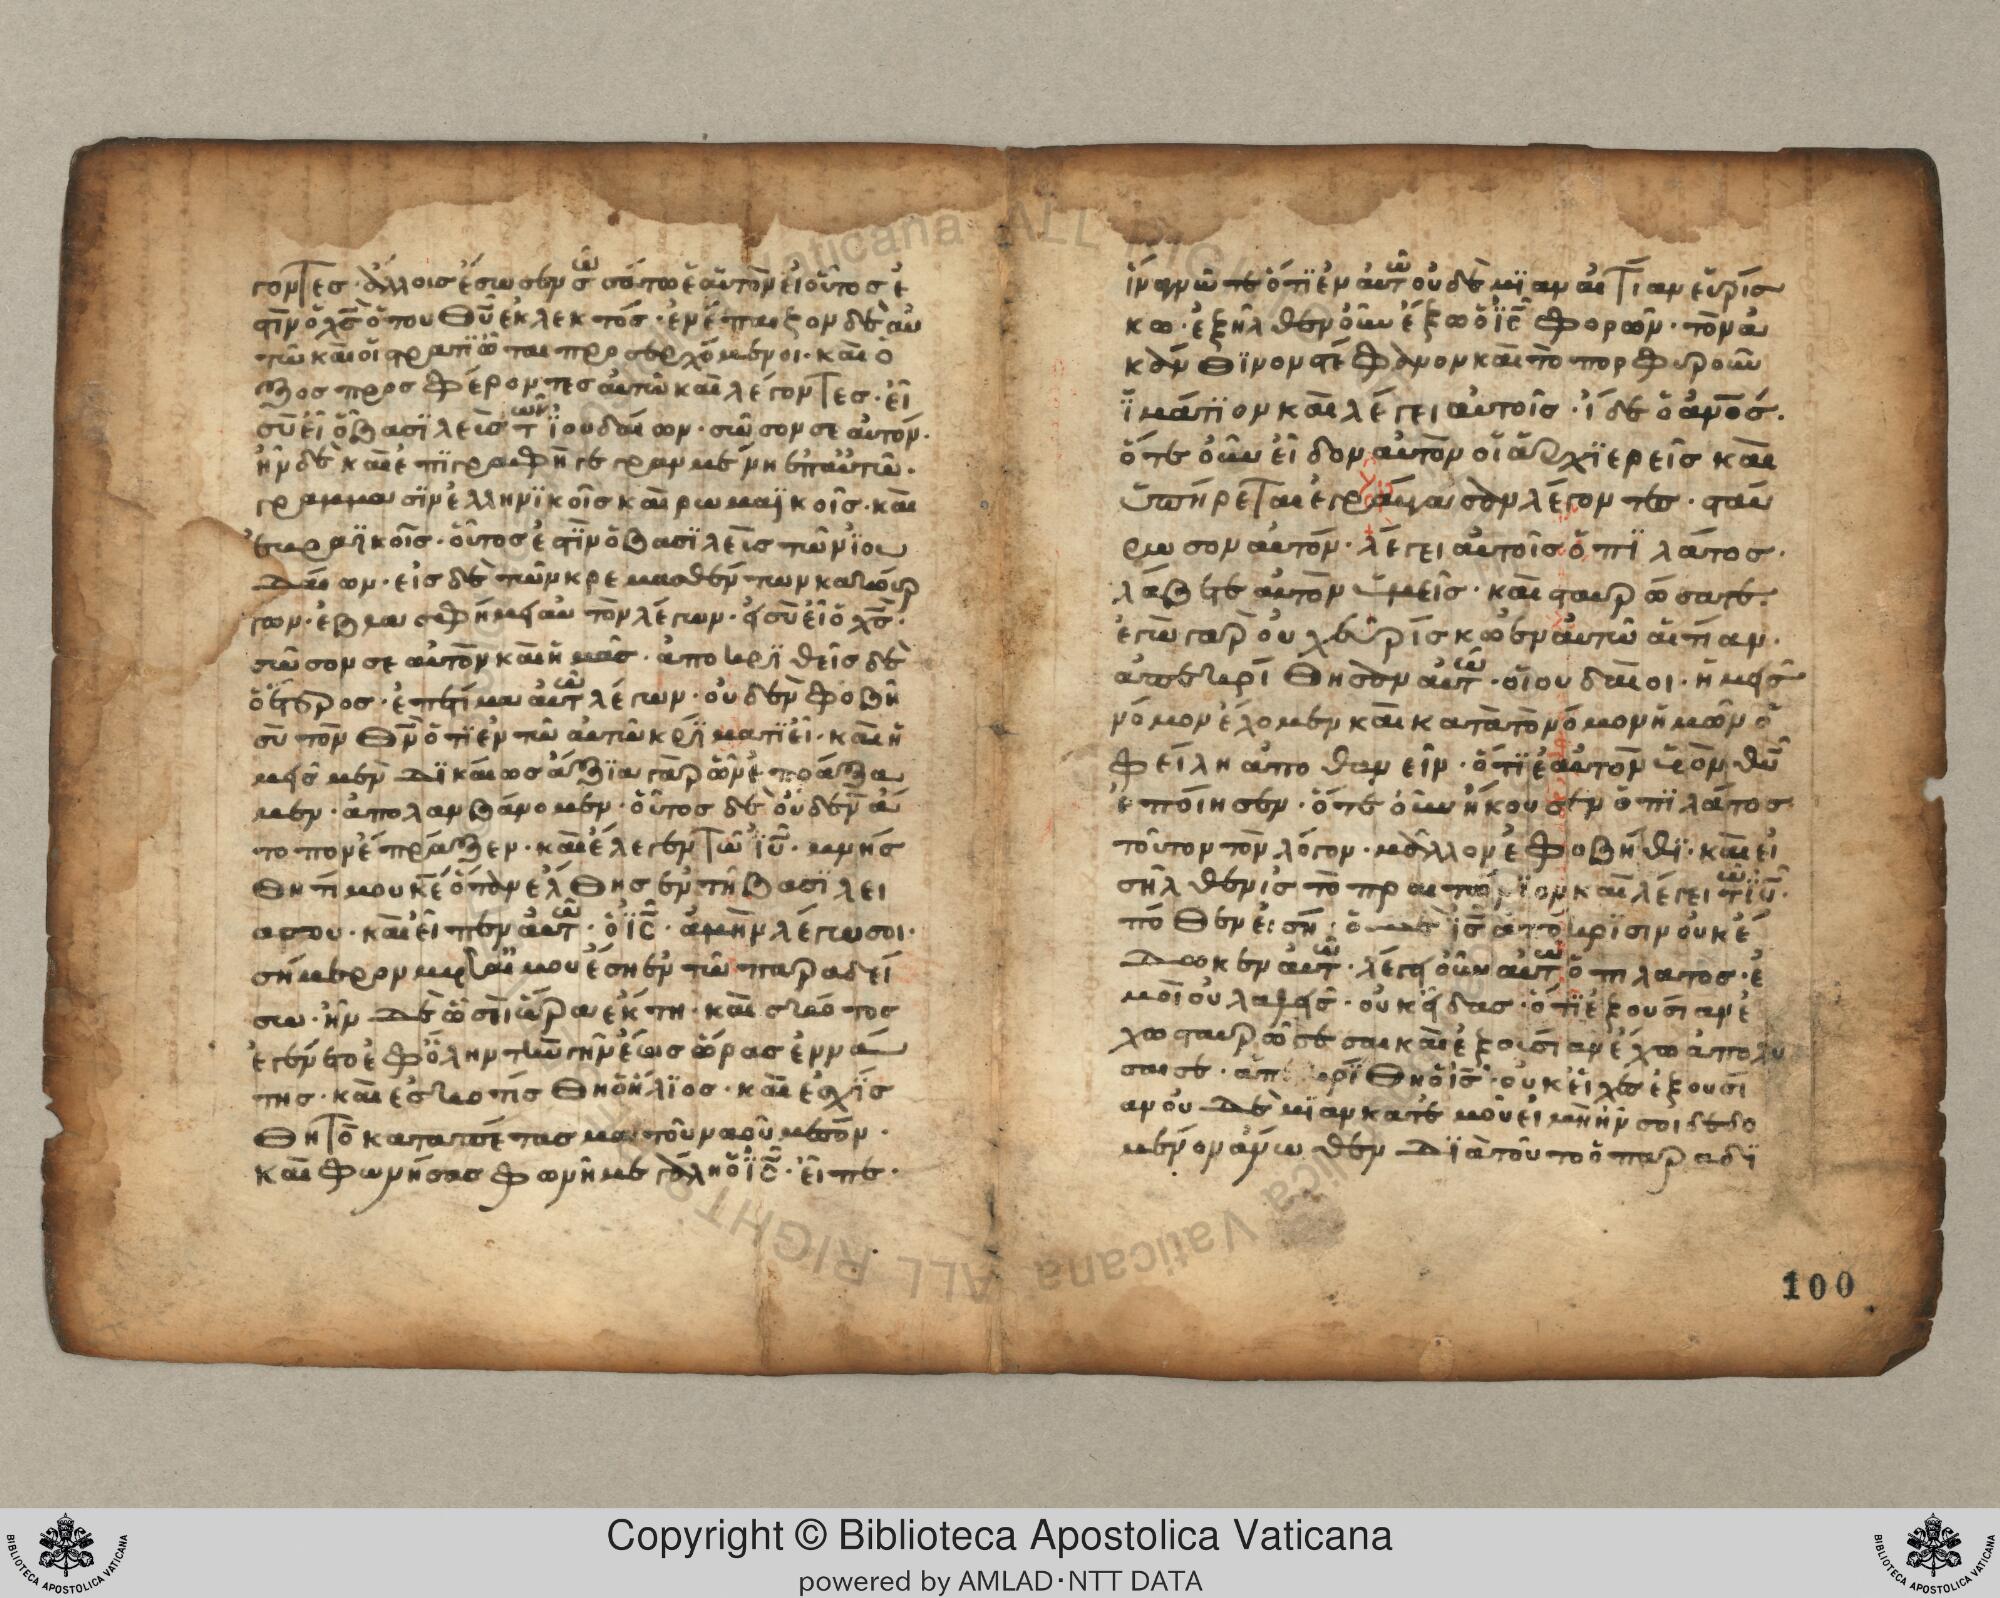 γοντες· ἄλλοις ἔσωσεν σωσάτω ἑαυτὸν εἰ οὗτος ἐ
στιν ὁ χς ὁ του θυ ἐκλεκτός· ἐνέπαιξον δὲ αὐ
τῶ και οἱ στρατιῶται προσερχόμενοι· και ὁ
ξος προσφέροντες αὐτῶ και λέγοντες· εἰ
σὺ εἶ ὁ βασιλεὺς τῶν ἰουδαίων· σῶσον σε αὐτόν·
ἦν δὲ και ἐπιγραφὴ γεγραμμένη ἐπ αὐτῶ·
γράμμασιν ἑλληνικοῖς και ρωμαϊκοῖς· και
ἑβραϊκοῖς· οὗτος ἐστιν ὁ βασιλεὺς τῶν ἰου
δαίων· εἷς δὲ τῶν κρεμασθέντων κακούρ
γων· ἐβλασφήμει αὐτὸν λέγων· εἰ σὺ εἶ ὁ χς·
σῶσον σε αὐτὸν και ἡμᾶς· ἀποκριθεὶς δὲ
ὁ ἕτερος· ἐπετίμα αὐτῶ λέγων· οὐδὲν φοβῆ
σὺ τὸν θν ὅτι ἐν τῶ αὐτῶ κρίματι εἶ· και ἡ
μεῖς μὲν δικαίως ἄξια γὰρ ὧν ἐπράξα
μεν· ἀπολαμβάνομεν· οὗτος δὲ οὐδὲν ἄ
τοπον ἔπραξεν· και ἔλεγεν τῶ ιυ· μνήσ
θητι μου κε ὅταν ἔλθης ἐν τῆ βασιλεί
α σου· και εἶπεν αὐτῶ· ὁ ις· ἀμὴν λέγω σοι·
σήμερον μετ' ἐμοῦ ἔση ἐν τῶ παραδεί
σω· ἦν δὲ ὡσὶ ὥρα ἕκτη· και σκότος
ἐγένετο ἐφ ὅλην τὴν γῆν ἕως ὥρας ἐννά
της· και ἐσκοτίσθη ὁ ἥλιος· και ἐσχίσ
θη τὸ καταπέτασμα τοῦ ναοῦ μέσον·
και φωνήσας φωνῆ μεγάλη ὁ ις· εἶπε·
ἵνα γνῶτε ὅτι ἐν αὐτῶ οὐδὲ μίαν αἰτίαν εὑρίσ
κω· ἐξῆλθεν οὖν ἔξω ὁ ις φορῶν· τὸν ἀ
κάνθινον στέφανον και τὸ πορφυροῦν
ἱμάτιον και λέγει αὐτοῖς· ἴδε ὁ ἀνος·
ὅτε οὖν εἶδον αὐτὸν οἱ ἀρχιερεῖς και
ὑπηρέται ἐκραύγασαν λέγοντες· σταύ
ρωσον αὐτόν· λέγει αὐτοῖς ὁ πιλάτος·
λάβετε αὐτὸν ὑμεῖς· και σταυρώσατε·
ἐγὼ γὰρ οὐχ εὑρίσκω ἐν αὐτῶ αἰτίαν·
ἀπεκρίθησαν αὐτῶ· οἱ ουδαῖοι· ἡμεῖς
νόμον ἔχομεν και κατὰ τὸν νόμον ἡμῶν ὀ
φείλη ἀποθανεῖν· ὅτι ἑαυτὸν υἱὸν θυ
ἐποίησεν· ὅτε οὖν ἤκουσεν ὁ πιλάτος
τοῦτον τὸν λόγον· μᾶλλον ἐφοβήθι· και εἰ
σῆλθεν εἰς τὸ πραιτώριον και λέγει τῶ ιυ·
πόθεν εἶ σὴ· ὁ δὲ ις ἀπόκρισιν οὐκ ἔ
δωκεν αὐτῶ· λέγει οὖν αὐτῶ ὁ πιλατος· ἐ
μοὶ οὐ λαλεῖς· οὐκ οἶδας· ὅτι ἐξουσίαν ἔ
χω σταυρῶσαι σε και ἐξουσίαν ἔχω ἀπολῦ
σαι σε· ἀπεκρίθη ὁ ις· οὐκ εἶχες ἐξουσί
αν οὐδὲ μίαν κατ' ἐμοῦ εἰ μὴ ἦν σοι δεδο
μένον ἄνωθεν διὰ τοῦτο ὁ παραδι
100
Copyright © Biblioteca Apostolica Vaticana
powered by AMLAD·NTT DATA